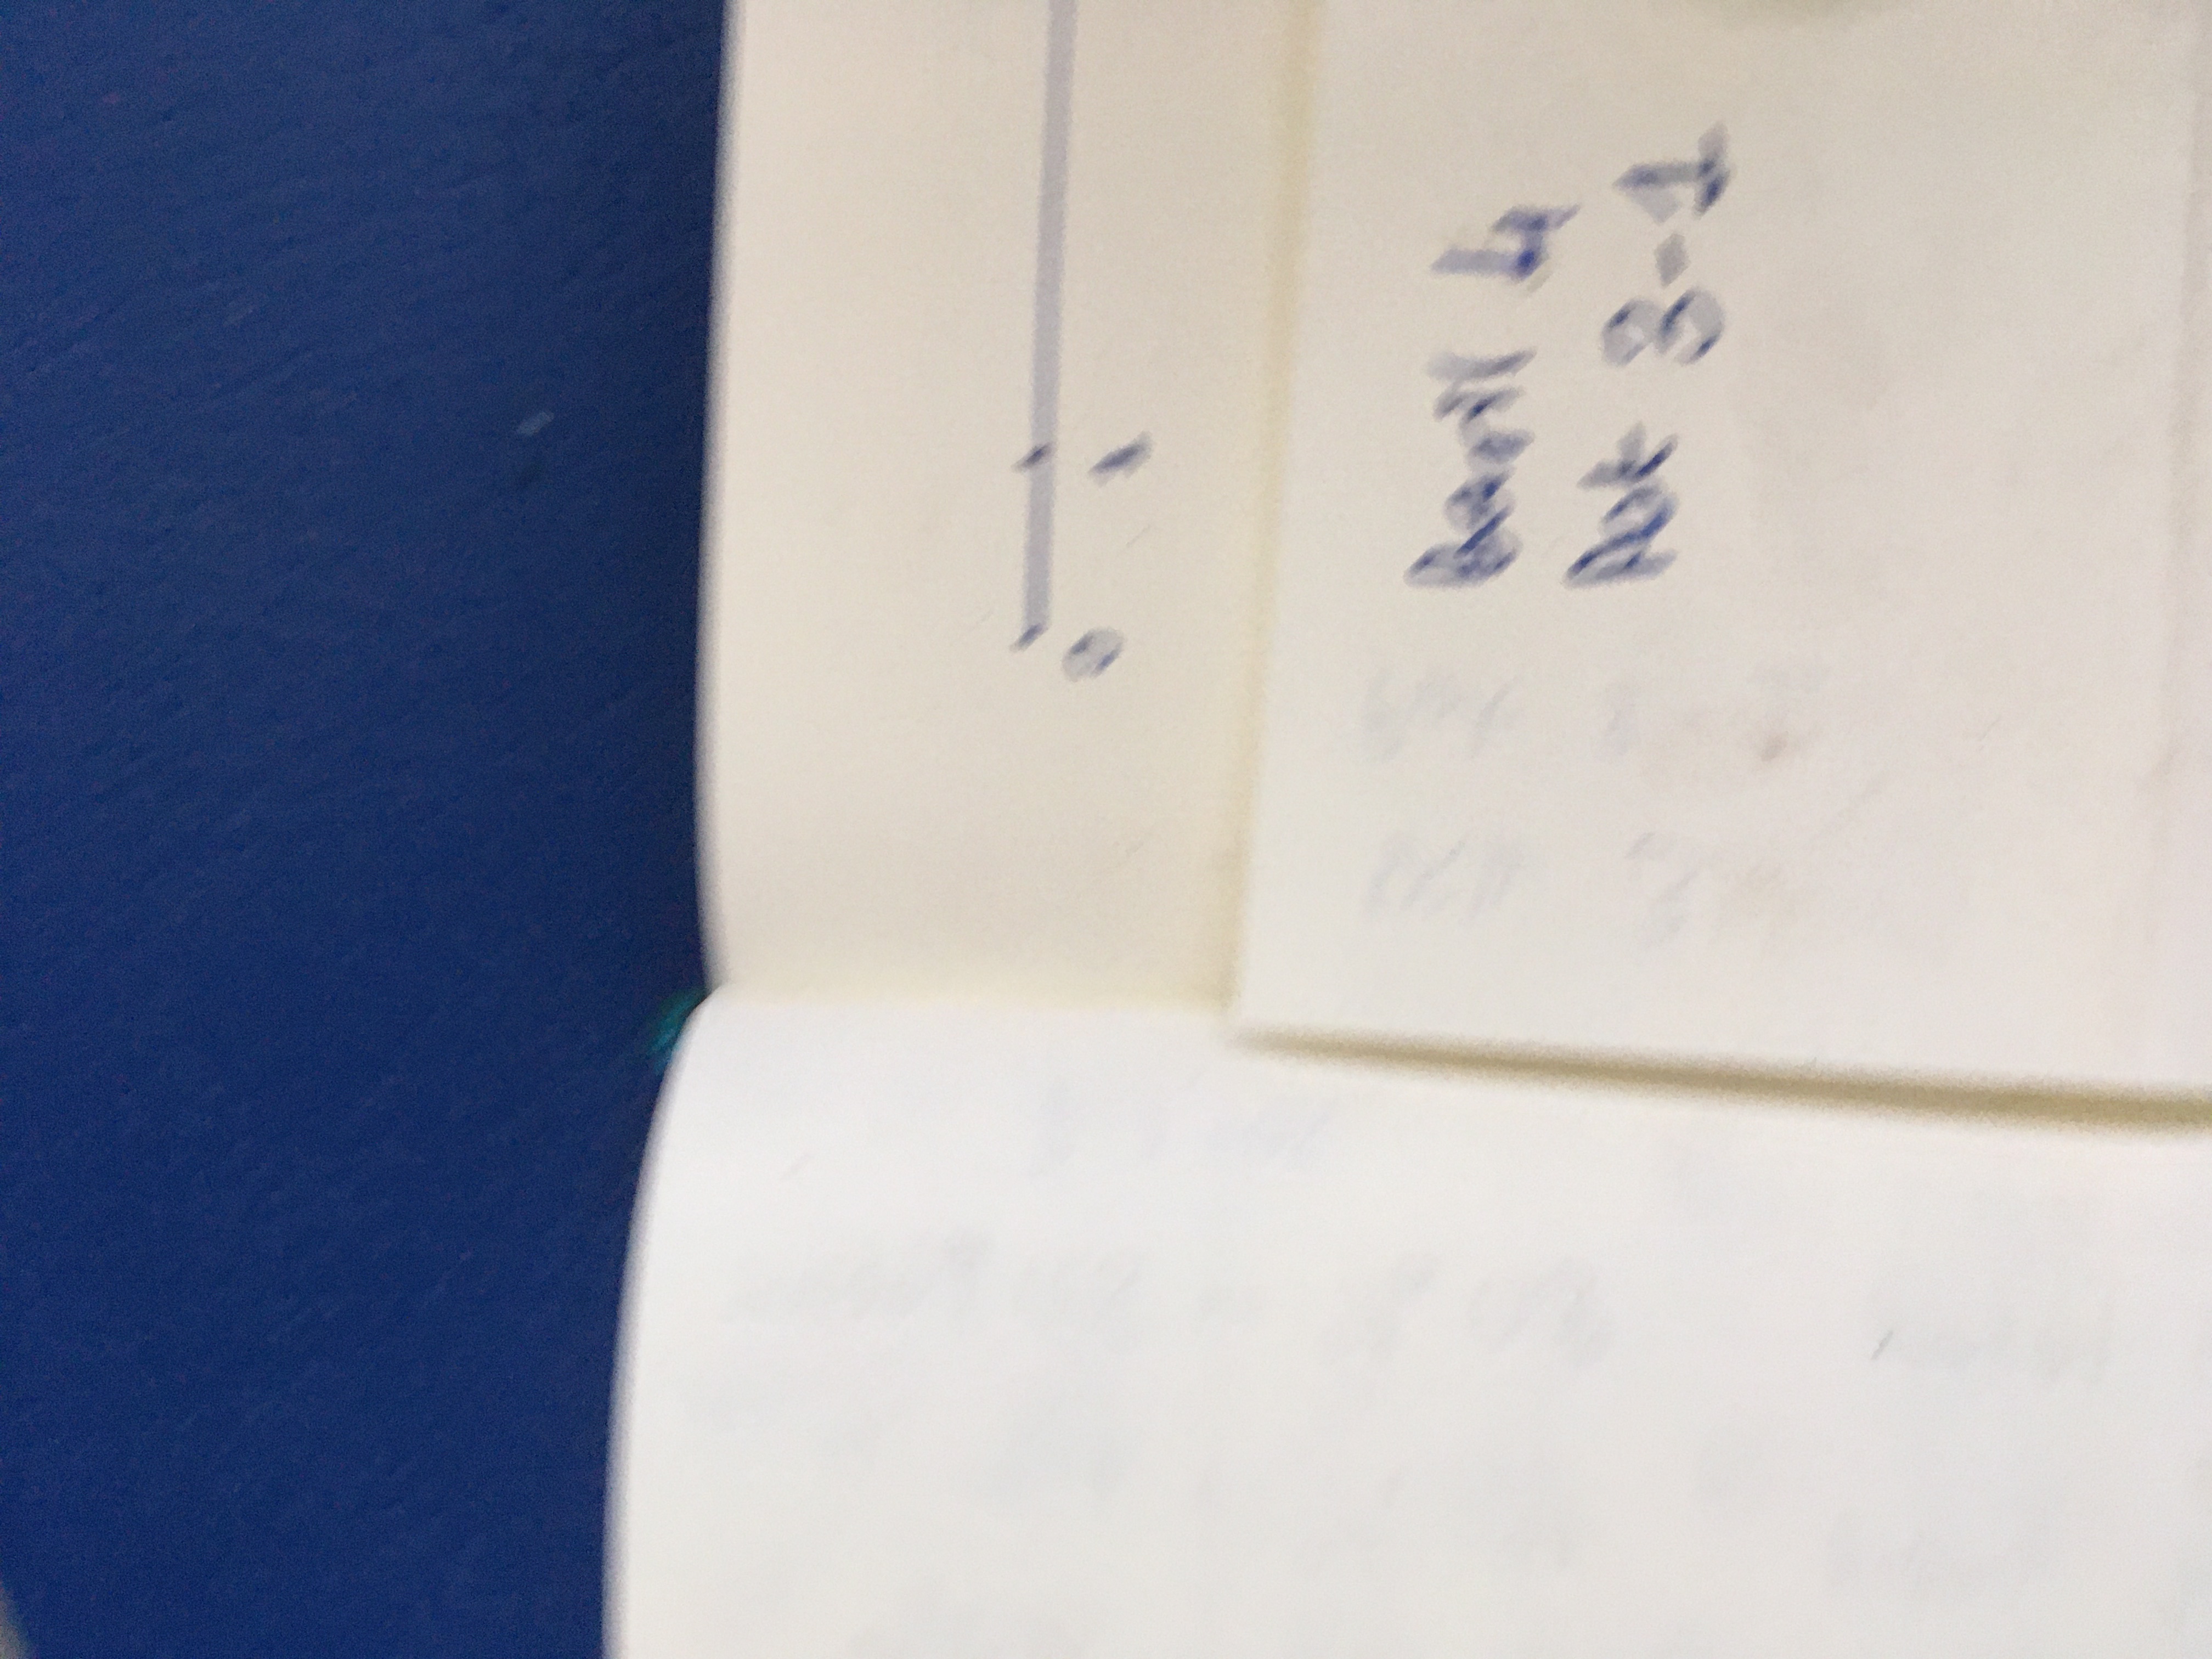 0 1
Basil 4
Pot 3-1